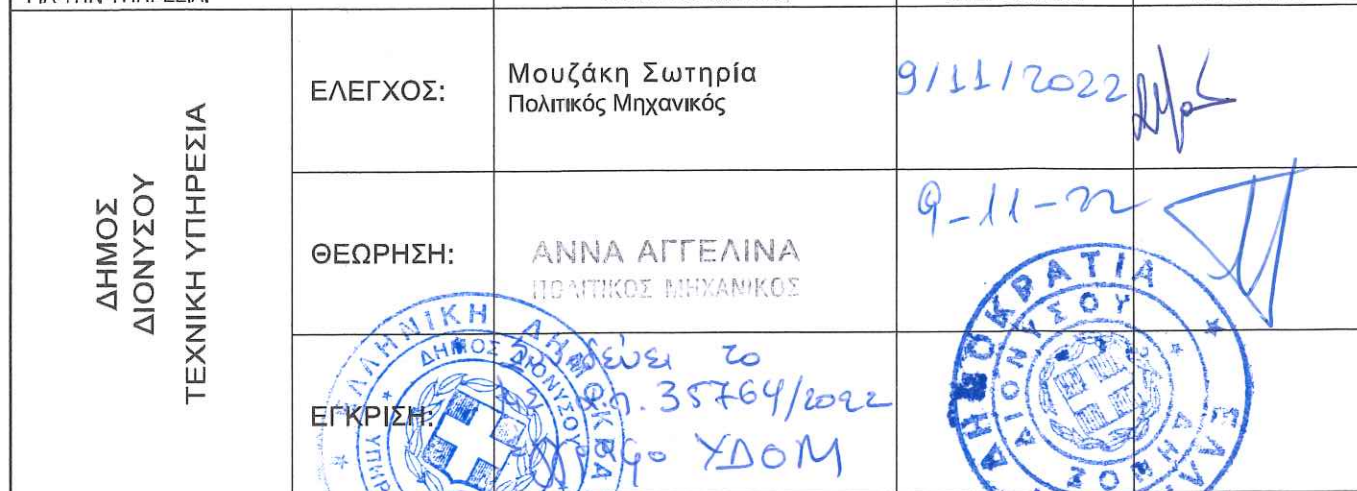 ΔΗΜΟΣ
ΔΙΟΝΥΣΟΥ
ΤΕΧΝΙΚΗ ΥΠΗΡΕΣΙΑ
ΕΛΕΓΧΟΣ:
Μουζάκη Σωτηρία
Πολιτικός Μηχανικός
9/11/2022
ΘΕΩΡΗΣΗ:
ΑΝΝΑ ΑΓΓΕΛΙΝΑ
ΠΟΛΙΤΙΚΟΣ ΜΗΧΑΝΙΚΟΣ
9-11-22
ΕΓΚΡΙΣΗ:
το
35764/2022
ΥΔΟΜ
ΕΛΛΗΝΙΚΗ
ΔΗΜΟΣ ΔΙΟΝΥΣΟΥ
ΔΗΜΟΚΡΑΤΙΑ
ΔΙΟΝΥΣΟΥ